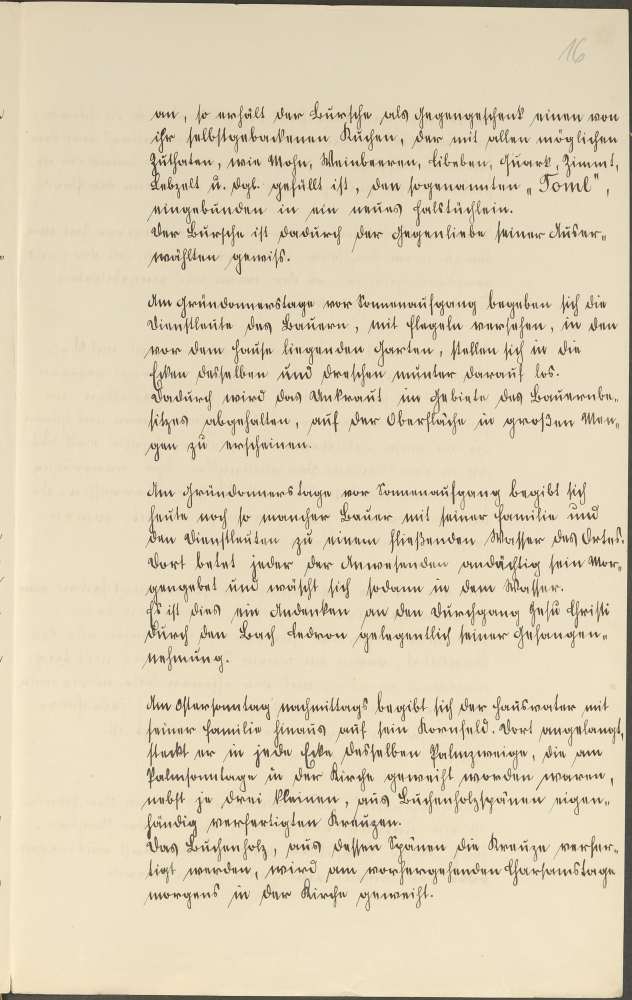 16
an, so erhält der Bursche als Gegengeschenk einen von
ihr selbstgebackenen Kuchen, der mit allen möglichen
Zuthaten, wie Mohn, Weinbeeren, Cibeben, Quark, Zimmt,
Lebzelt u. dgl. gefüllt ist, den sogenannten „Toml",
eingebunden in ein neues Halstüchlein.
Der Bursche ist dadurch der Gegenliebe seiner Auser-
wählten gewiss.
Am Gründonnerstage vor Sonnenaufgang begeben sich die
Dienstleute des Bauern, mit Flegeln versehen, in den
vor dem Hause liegenden Garten, stellen sich in die
Ecken desselben und dreschen munter darauf los.
Dadurch wird das Unkraut im Gebiete des Bauernbe-
sitzes abgehalten, auf der Oberfläche in großen Men-
gen zu erscheinen.
Am Gründonnerstage vor Sonnenaufgang begibt sich
heute noch so mancher Bauer mit seiner Familie und
den Dienstleuten zu einem fließenden Wasser des Ortes.
Dort betet jeder der Anwesenden andächtig sein Mor-
gengebet und wäscht sich sodann in dem Wasser.
Es ist dies ein Andenken an den Durchgang Jesu Christi
durch den Bach Cedron gelegentlich seiner Gefangen-
nehmung.
Am Ostersonntag nachmittags begibt sich der Hausvater mit
seiner Familie hinaus auf sein Kornfeld. Dort angelangt,
steckt er in jede Ecke desselben Palmzweige, die am
Palmsonntage in der Kirche geweiht worden waren,
nebst je drei kleinen, aus Buchenholzspänen eigen-
händig verfertigten Kreuzen.
Das Buchenholz, aus dessen Spänen die Kreuze verfer-
tigt werden, wird am vorhergehenden Charsamstage
morgens in der Kirche geweiht.